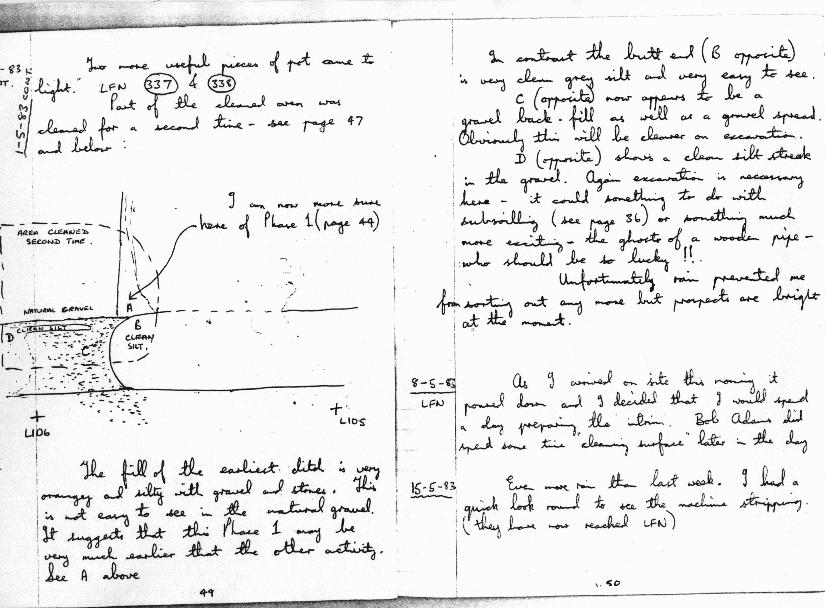 - 83
OT.
1-5-83 CONT.
Two more useful pieces of pot came to
light." LFN 337 & 338
Part of the cleaned area was
cleaned for a second time - see page 47
and below :
I am now more sure
here of Phase 1 (page 44)
AREA CLEANED
SECOND TIME.
NATURAL GRAVEL
A
D
CLEAN SILT
B
CLEAN
SILT.
C
L106
L105
The fill of the earliest ditch is very
orangey and silty with gravel and stones. This
is not easy to see in the natural gravel.
It suggests that this Phase 1 may be
very much earlier that the other activity.
See A above
49
In contrast the butt end (B opposite)
is very clean grey silt and very easy to see.
C (opposite) now appears to be a
gravel back-fill as well as a gravel spread.
Obviously this will be clearer on excavation.
D (opposite) shows a clean silt streak
in the gravel. Again excavation is necessary
here - it could something to do with
subsoilling (see page 36) or something much
more exciting - the ghosts of a wooden pipe -
who should be so lucky !!.
Unfortunately rain prevented me
from sorting out any more but prospects are bright
at the moment.
8-5-83
LFN
As I arrived on site this morning it
poured down and I decided that I would spend
a day preparing the interim. Bob Adams did
spend some time "cleaning surface" later in the day
15-5-83
Even more rain than last week. I had a
quick look round to see the machine stripping.
(they have now reached LFN)
50